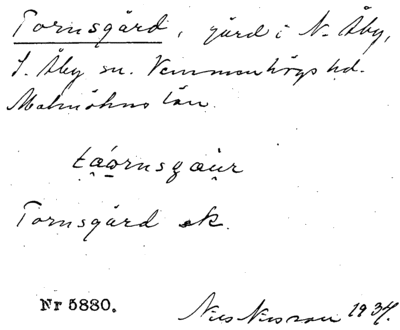 Tornsgård, gård i N. Åby,
S. Åby sn. Vemmenhögs hd.
Malmöhus län.
ta̯ω̲rnsgau̯r
Tornsgård ek.
Nr 5880.
Nils Nilsson 1934.